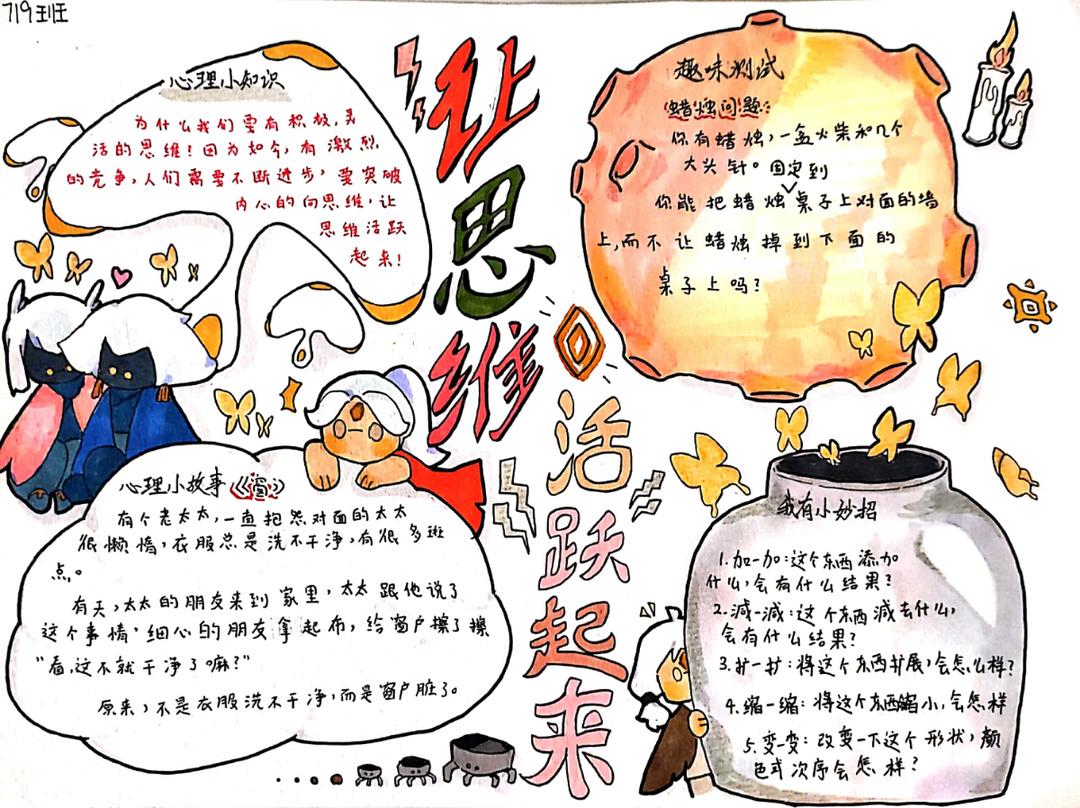 719班
让思维活跃起来
心理小知识
为什么我们要有积极,灵
活的思维?因为如今,有激烈
的竞争,人们需要不断进步,要突破
内心的向思维,让
思维活跃
起来!
趣味测试
《蜡烛问题》:
你有蜡烛,一盒火柴和几个
大头针。固定到
你能把蜡烛桌子上对面的墙
上,而不让蜡烛掉到下面的
桌子上吗?
心理小故事《窗》
有个老太太,一直抱怨对面的太太
很懒惰,衣服总是洗不干净,有很多斑
点。
有天,太太的朋友来到家里,太太跟他说了
这个事情,细心的朋友拿起布,给窗户擦了擦
“看,这不就干净了嘛?”
原来,不是衣服洗不干净,而是窗户脏了。
我有小妙招
1.加一加:这个东西添加
什么,会有什么结果?
2.减一减:这个东西减去什么,
会有什么结果?
3.扩一扩:将这个东西扩展,会怎么样?
4.缩一缩:将这个东西缩小,会怎样
5.变一变:改变一下这个形状,颜
色或次序会怎样?